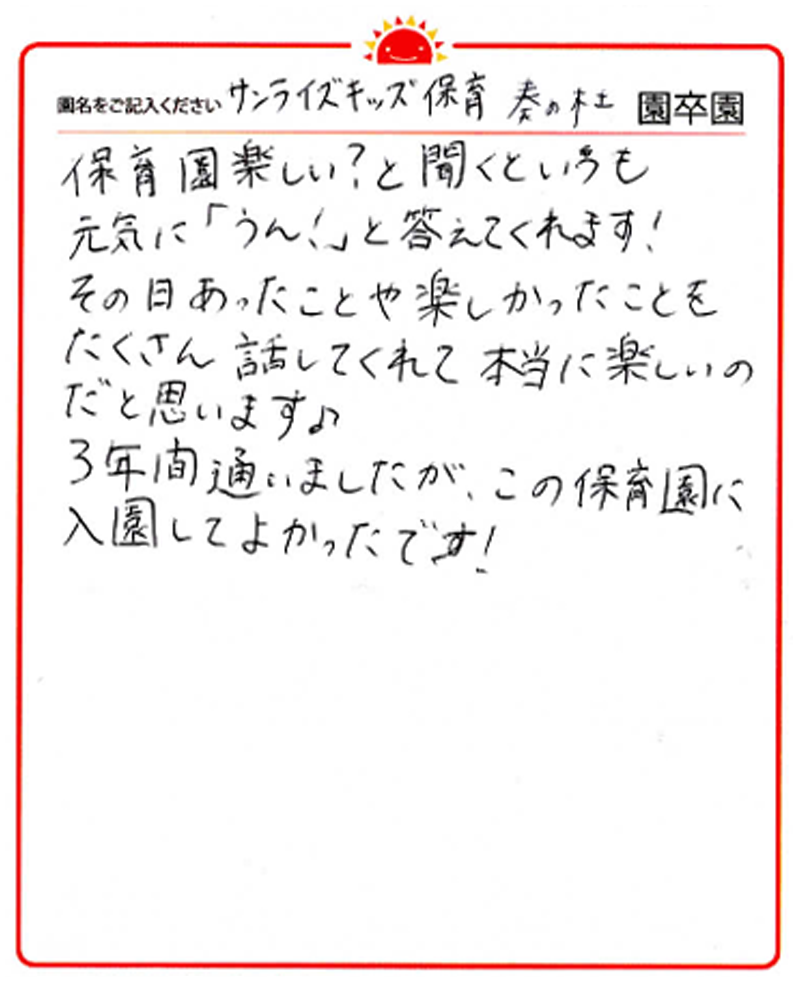 園名をご記入ください サンライズキッズ保育 奏の杜 園卒園
保育園楽しい?と聞くといつも
元気に「うん!」と答えてくれます!
その日あったことや楽しかったことを
たくさん話してくれて本当に楽しいの
だと思います♪
3年間通いましたが、この保育園に
入園してよかったです!